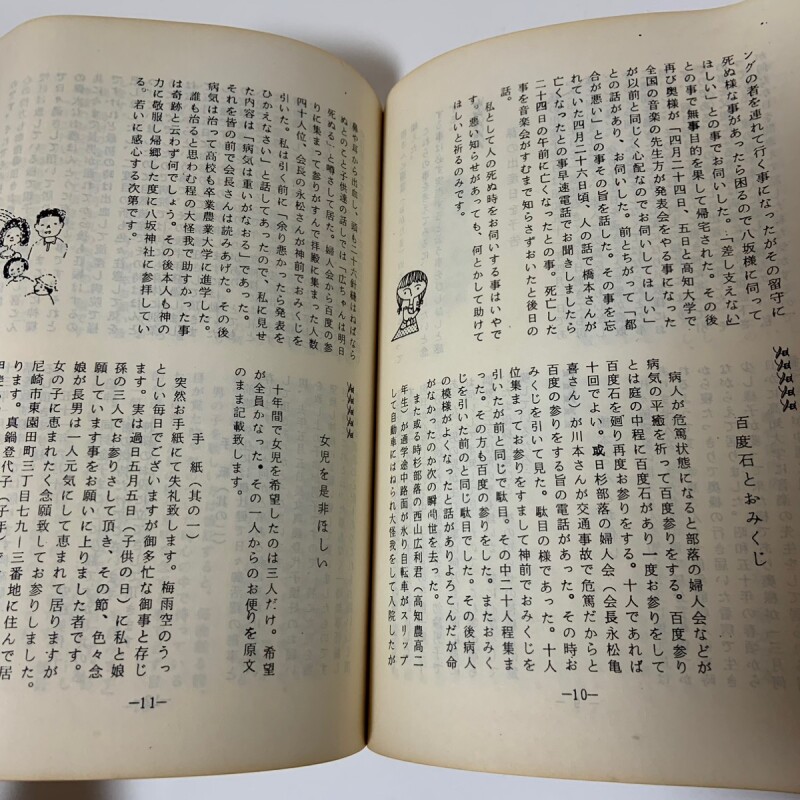 ングの者を連れて行く事になったがその留守に
死ぬ様な事があったら困るので八坂様に伺って
ほしい」との事でお伺いした。「差し支えない」
との事で無事目的を果して帰宅された。その後
再び奥様が「四月二十四日、五日と高知大学で
全国の音楽の先生方が発表会をやる事になった
が以前と同じく心配なのでお伺いしてほしい」
との話があり、お伺いした。前とちがって「都
合が悪い」との事その旨を話した。その事を忘
れていた四月二十六日頃、人の話で橋本さんが
亡くなったとの事早速電話でお聞きしましたら
二十四日の午前に亡くなったとの事。死亡した
事を音楽会がすむまで知らさずおいたと後日の
話。
私として人の死ぬ時をお伺いする事はいやで
す。悪い知らせがあっても、何とかして助けて
ほしいと祈るのみです。
百度石とおみくじ
病人が危篤状態になると部落の婦人会などが
病気の平癒を祈って百度参りをする。百度参り
とは庭の中程に百度石があり一度お参りをして
百度石を廻り再度お参りをする。十人であれば
十回でよい。或日杉部落の婦人会(会長永松亀
喜さん)が川本さんが交通事故で危篤だからと
百度の参りをする旨の電話があった。その時お
みくじを引いて見た。駄目の様であった。十人
位集まってお参りをすまして神前でおみくじを
引いたが前と同じで駄目。その中二十人程集ま
った。その方も百度の参りをした。またおみく
じを引いた前のと同じ駄目でした。その後病人
の模様がよくなったと話がありよろこんだが命
がなかったのか次の瞬間世を去った。
また或る時杉部落の西山広利君(高知農高二
年生)が通学途中路面が氷り自転車がスリップ
して自動車にはねられ大怪我をして入院したが
—10—
鼻や耳から出血し、頭も二十六針縫はねばなら
ぬとのこと子供達の話しでは「広ちゃんは明日
死ぬる」と噂さして居た。婦人会から百度の参
りに集まって参りがすんで拝殿に集まった人数
四十人位、会長の永松さんが神前でおみくじを
引いた。私は引く前に「余り悪かったら発表を
ひかえなさい」と話してあったので、私に見せ
た内容は「病気は重いがなおる」であった。
それを皆の前で会長さんは読みあげた。その後
病気は治って高校も卒業農業大学に進学した。
誰も治ると思わむ程の大怪我で助すかった事
は奇跡と云わず何でしょう。その後本人も神の
力に敬服し帰郷した度に八坂神社に参拝してい
る。若いに感心する次第です。
女児を是非ほしい
十年間で女児を希望したのは三人だけ。希望
が全員かなった。その一人からのお便りを原文
のまま記載致します。
手紙(其の一)
突然お手紙にて失礼致します。梅雨空のうっ
としい毎日でございますが御多忙な御事と存じ
ます。実は過日五月五日(子供の日)に私と娘
孫の三人でお参りさして頂き、その節、色々念
願しています事をお願いに上りました者です。
娘が長男は一人元気にして恵まれて居りますが
女の子に恵まれたく念願致してお参りしました。
尼崎市東園田町三丁目七九ー三番地に住んで居
ります。真鍋登代子(子年)
—11—